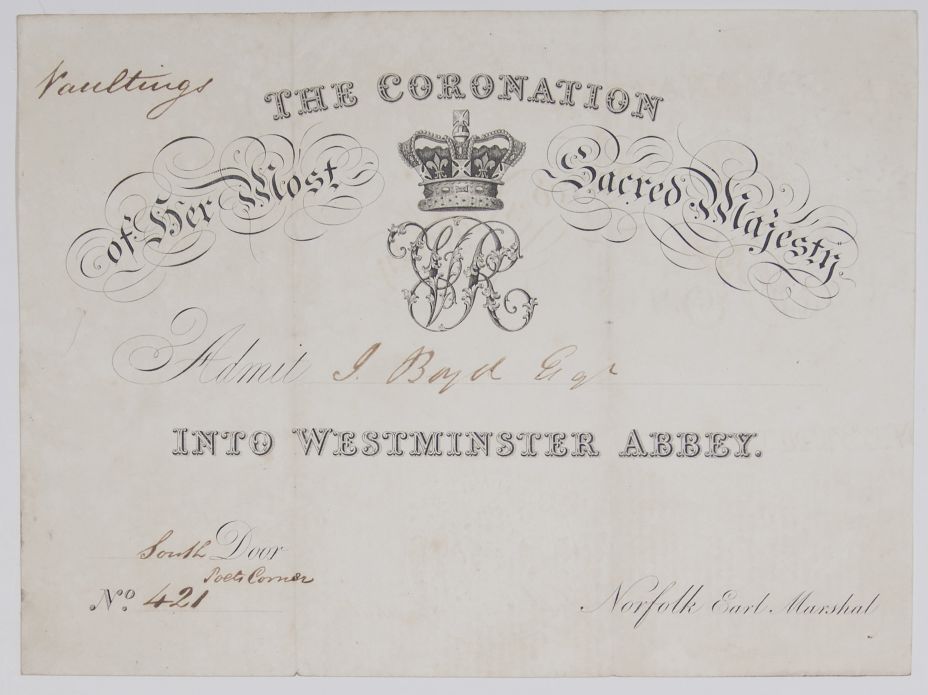 Vaultings
THE CORONATION
of Her Most Sacred Majesty.
VR
Admit J. Boyd Esqr
INTO WESTMINSTER ABBEY.
South Door
Poets Corner
No. 421
Norfolk Earl Marshal